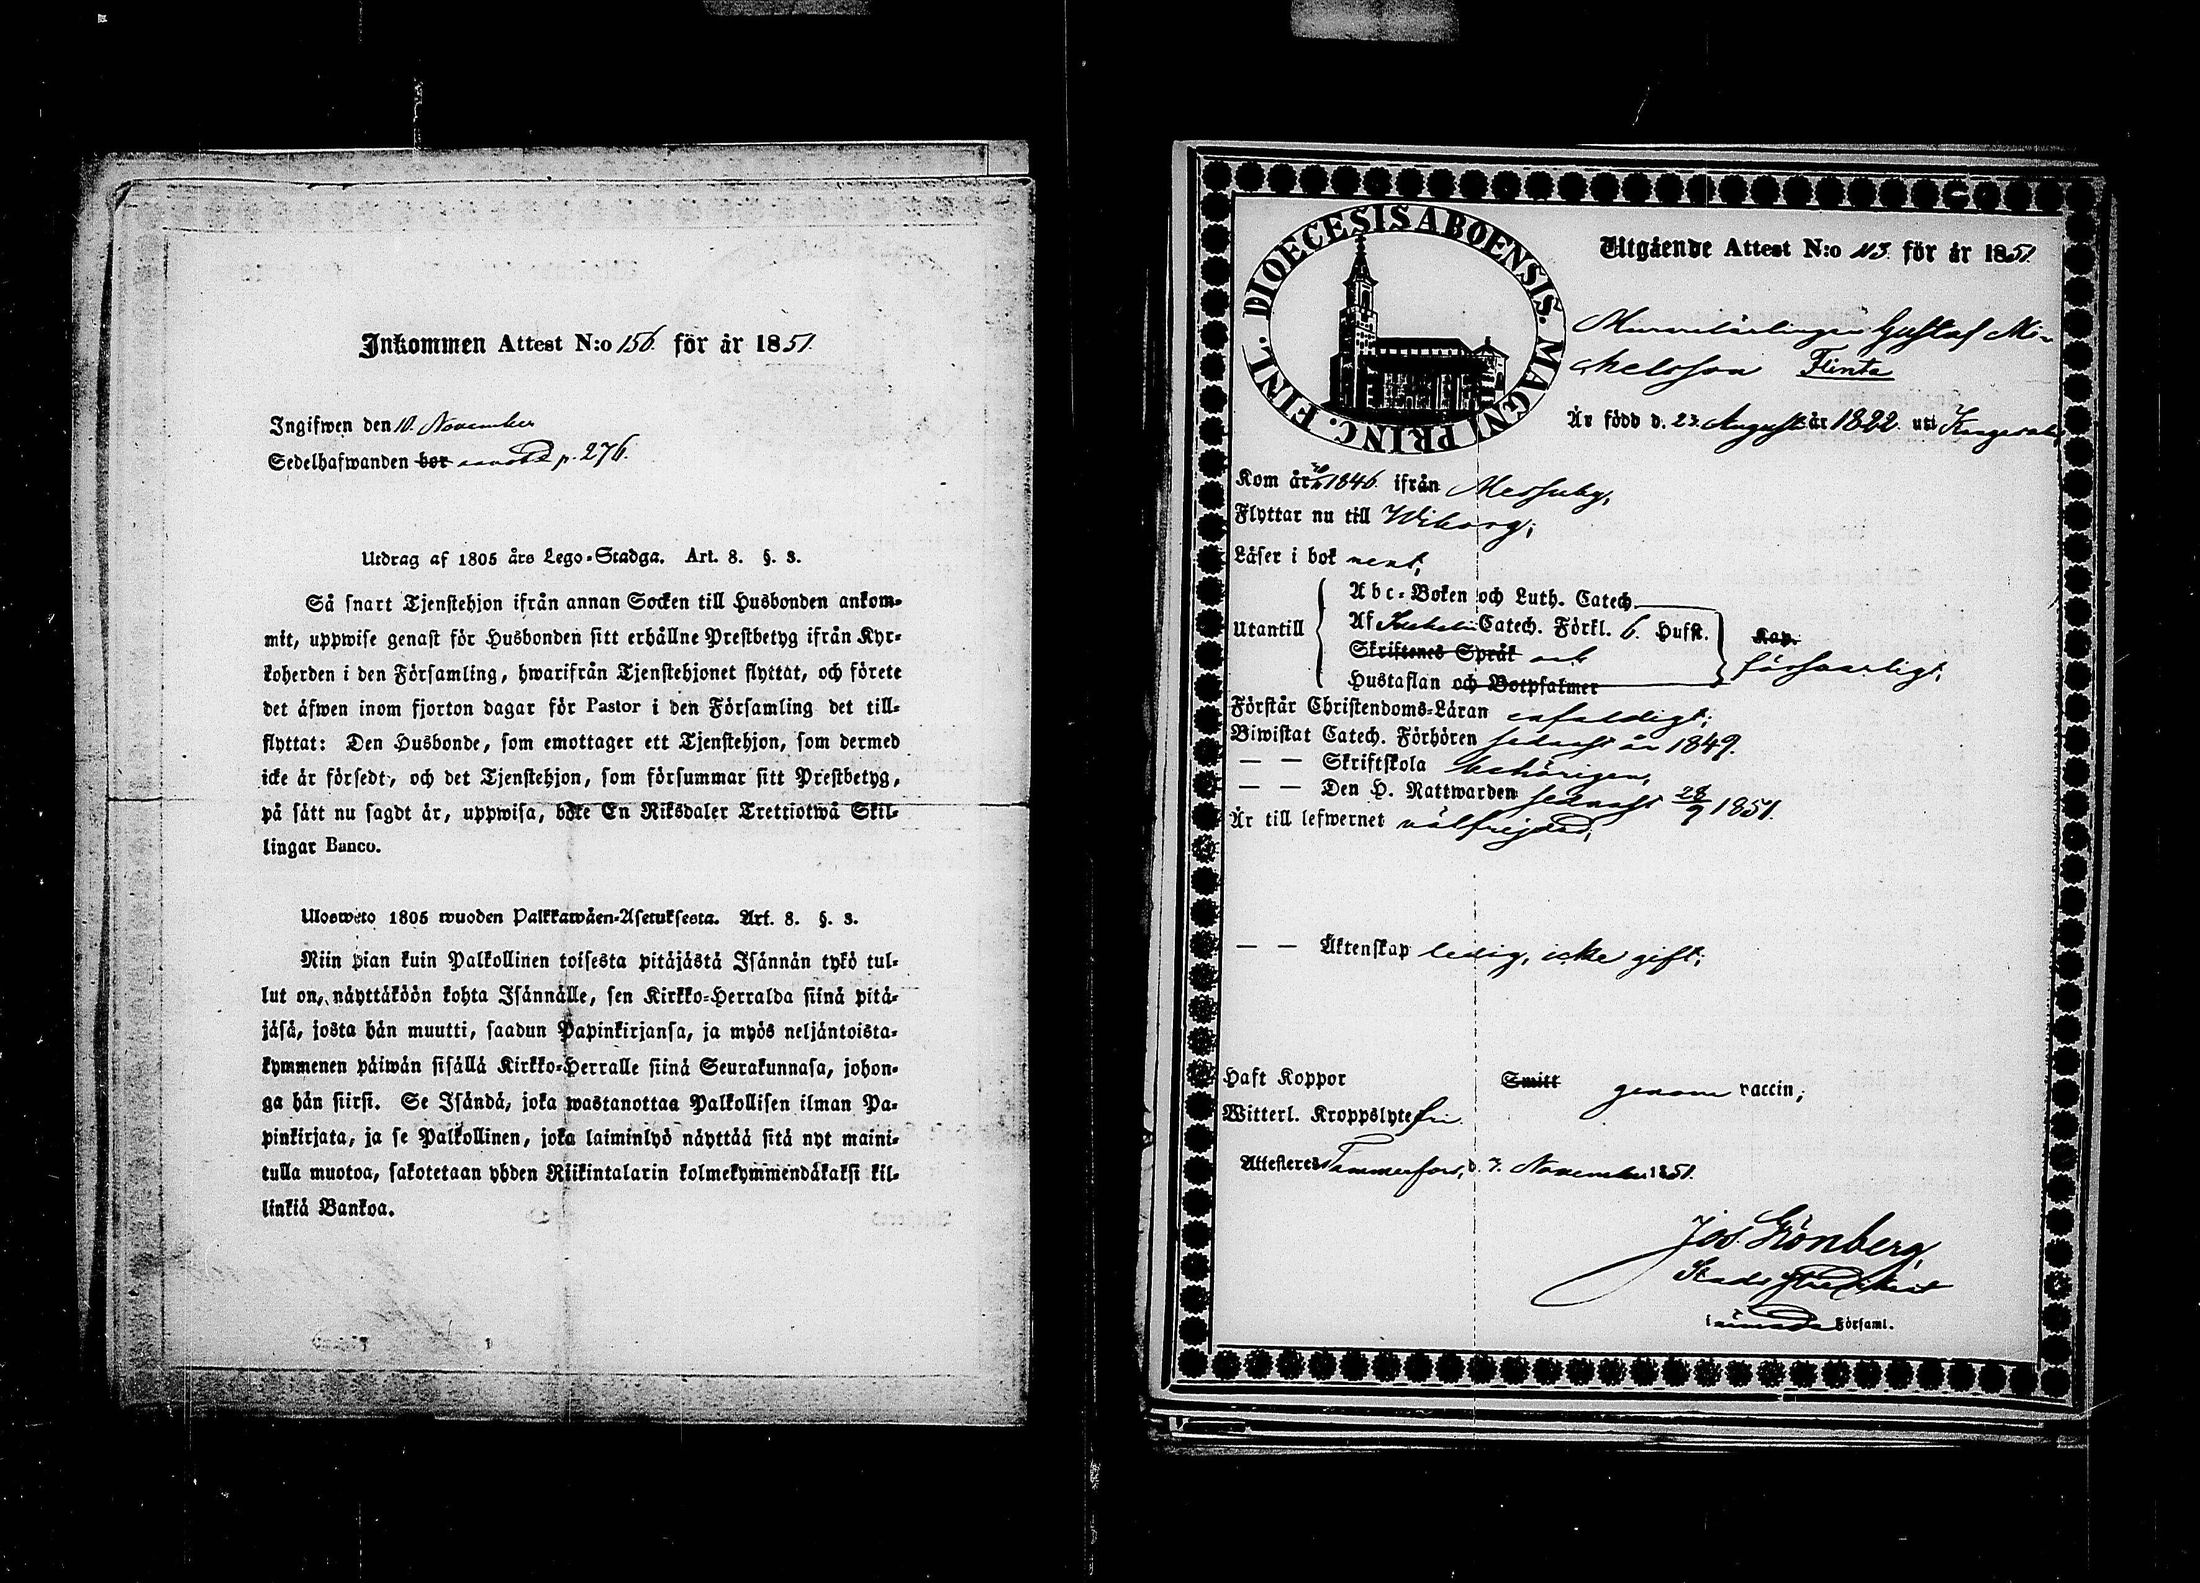 Inkommen Attest N:o 156. för år 1851.
Ingifwen den 10. November
Sedelhafwanden bor p. 276.
Utdrag af 1805 års Lego-Stadga. Art. 8. §. 3.
Så snart Tjenstehjon ifrån annan Socken till Husbonden ankom-
mit, uppwise genast för Husbonden sitt erhållne Prestbetyg ifrån Kyr-
koherden i den Församling, hwarifrån Tjenstehjonet flyttat, och förete
det äfwen inom fjorton dagar för Pastor i den Församling det till-
flyttat: Den Husbonde, som emottager ett Tjenstehjon, som dermed
icke är försedt, och det Tjenstehjon, som försummar sitt Prestbetyg,
på sätt nu sagdt är, uppwisa, böte En Riksdaler Trettiotwå Skil-
lingar Banco.
Ulosweto 1805 wuoden Palkkawäen-Asetuksesta. Art. 8. §. 3.
Niin pian kuin Palkollinen toisesta pitäjästä Isännän tykö tul-
lut on, näyttäköön kohta Isännälle, sen Kirkko-Herralda siinä pitä-
jäsä, josta hän muutti, saadun Papinkirjansa, ja myös neljäntoista-
kymmenen päiwän sisällä Kirkko-Herralle siinä Seurakunnasa, johon-
ga hän siirsi. Se Isändä, joka wastanottaa Palkollisen ilman Pa-
pinkirjata, ja se Palkollinen, joka laiminlyö näyttää sitä nyt maini-
tulla muotoa, sakotetaan yhden Riikintalarin kolmekymmendäkaksi kil-
linkiä Bankoa.
DIOECESIS ABOENSIS. MAGNI PRINC. FINL.
Utgående Attest N:o 113. för år 1851.
Murmästarlingen Gustaf Mi-
chelsson Flinta
Är född d. 23. Augusti år 1822. uti Kangasala
Kom år 1846. ifrån Messuby,
Flyttar nu till Wiborg;
Läser i bok rent,
Utantill
Abc-Boken och Luth. Catech.
Af Catech. Förkl. 6. Hufst.
Skriftenes Språk och
Hustaflan och Botpsalmer
Kap.
försvarligt,
Förstår Christendoms-Läran enfaldigt;
Biwistat Catech. Förhören sednast år 1849.
— — Skriftskola behörigen,
— — Den H. Nattwarden sednast 28/9 1851.
Är till lefwernet välfrejdad;
— — Äktenskap ledig, icke gift;
Haft Koppor Smitt genom vaccin;
Witterl. Kroppslyte fri.
Attesteres Tammerfors, d. 7. November 1851.
Jos. Grönberg,
Stads
i Församl.